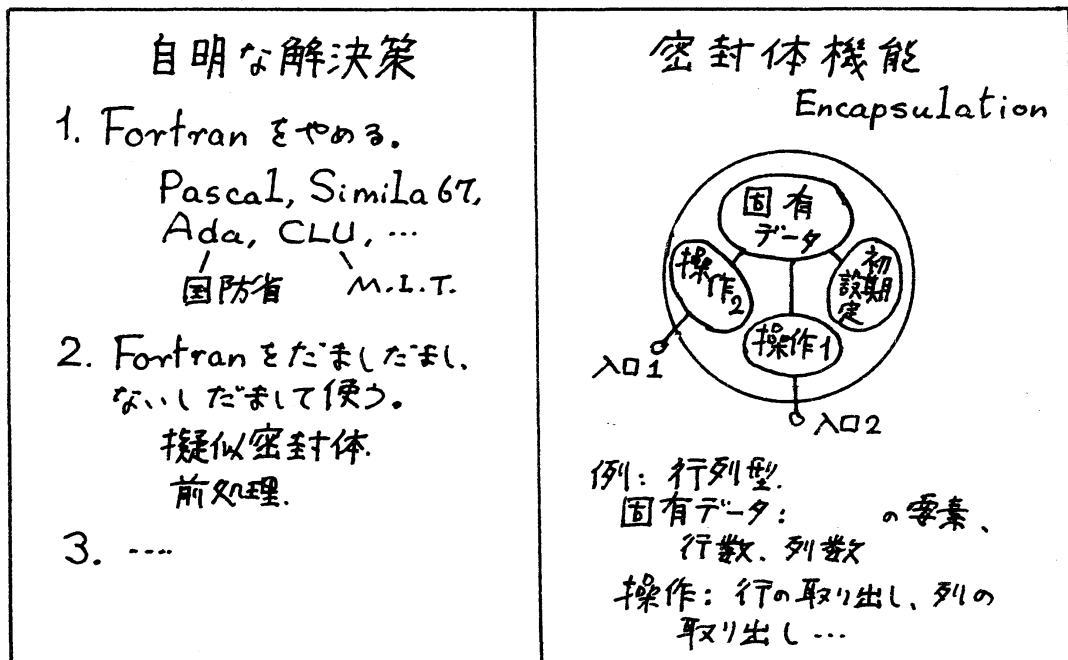 自明な解決策
1. Fortran をやめる。
Pascal, Simila 67,
Ada, CLU, …
国防省 M.I.T.
2. Fortran をだましだまし、
ないしだまして使う。
擬似密封体.
前処理.
3. ....
密封体機能
Encapsulation
固有
データ
操作2
初期
設定
操作1
入口1
入口2
例: 行列型.
固有データ: の要素、
行数、列数
操作: 行の取り出し、列の
取り出し …